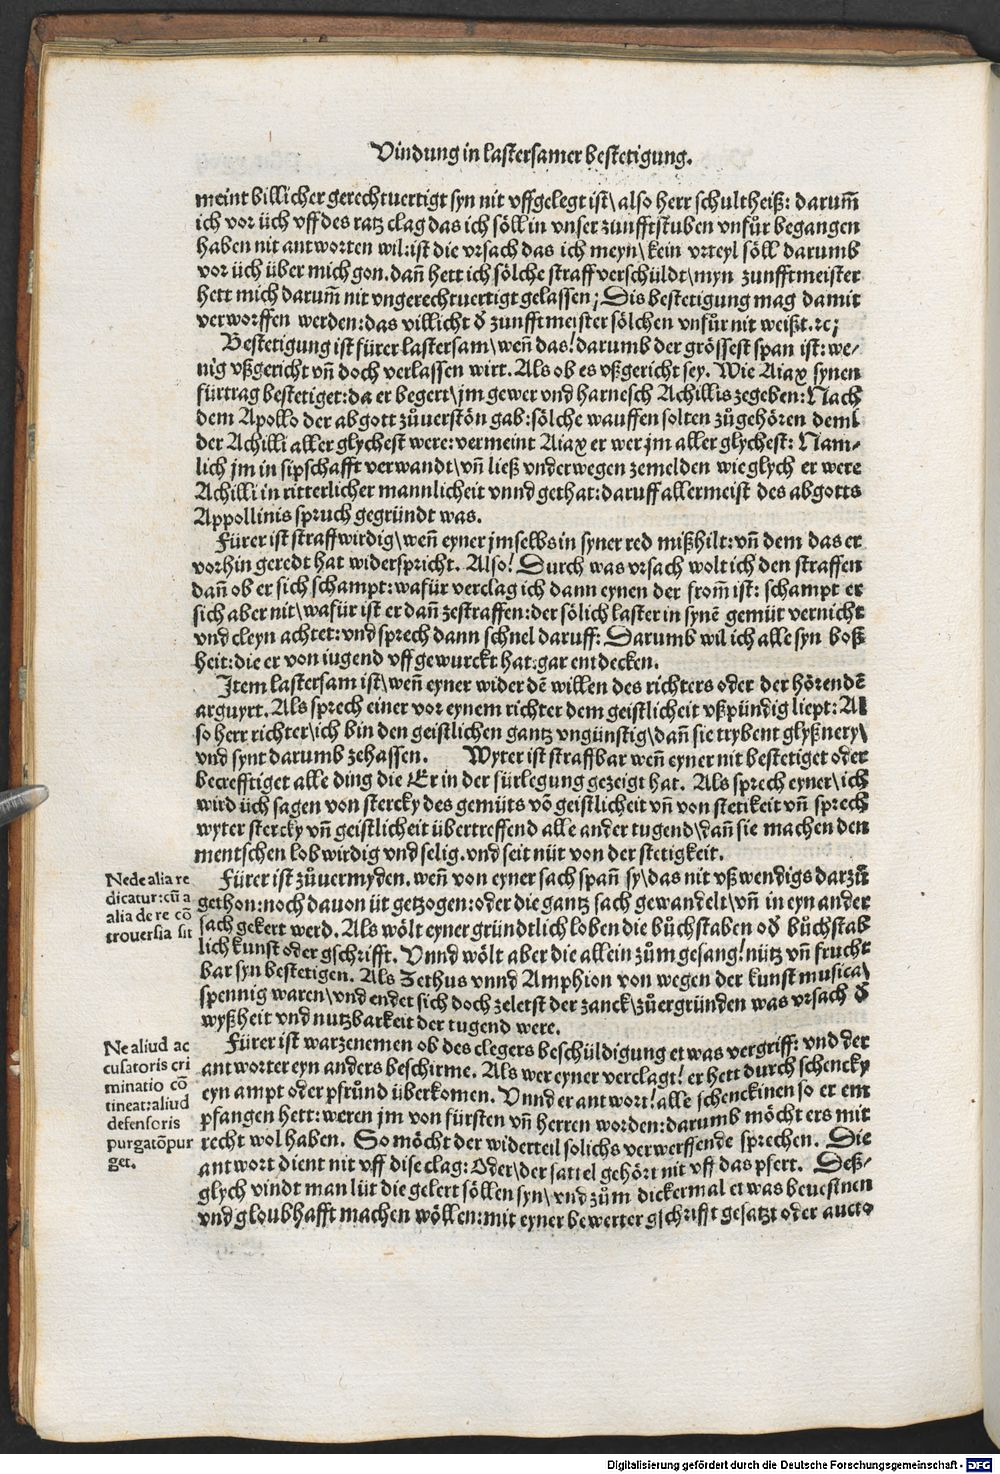 Vindung in lastersamer bestetigung.
meint billicher gerechtuertigt syn nit vffgelegt ist\ also herr schultheiß: darum̄
ich vor üch vff des ratz clag das ich söll in vnser zunfftstuben vnfůr begangen
haben nit antworten wil: ist die vrsach das ich meyn\ kein vrteyl söll darumb
vor üch über mich gon. dañ hett ich sölche straff verschüldt\ myn zunfftmeister
hett mich darum̄ nit vngerechtuertigt gelassen; Dis bestetigung mag damit
verworffen werden: das villicht d̕ zunfftmeister sölchen vnfůr nit weißt. ꝛc;
Bestetigung ist fürer lastersam\ weñ das! darumb der grössest span ist: we⸗
nig vßgericht vñ doch verlassen wirt. Als ob es vßgericht sey. Wie Aiax synen
fürtrag bestetiget: da er begert\ jm gewer vnd harnesch Achillis zegeben: Nach
dem Apollo der abgott zůuerstön gab: sölche wauffen solten zůgehören dem\
der Achilli aller glychest were: vermeint Aiax er wer jm aller glychest: Nam⸗
lich jm in sipschafft verwandt\ vñ ließ vnderwegen zemelden wie glych er were
Achilli in ritterlicher mannlicheit vnnd gethat: daruff allermeist des abgotts
Appollinis spruch gegründt was.
Fürer ist straffwirdig\ weñ eyner jmselbs in syner red mißhilt: vñ dem das er
vorhin geredt hat widerspricht. Also! Durch was vrsach wolt ich den straffen
dañ ob er sich schampt: wafür verclag ich dann eynen der from̄ ist: schampt er
sich aber nit\ wafür ist er dañ zestraffen: der sölich laster in synē gemüt vernicht
vnd cleyn achtet: vnd sprech dann schnel daruff: Darumb wil ich alle syn boß
heit: die er von iugend vff gewurckt hat. gar entdecken.
Item lastersam ist\ weñ eyner wider dē willen des richters oder der hörendē
arguyrt. Als sprech einer vor eynem richter dem geistlicheit vßpündig liept: Al
so herr richter\ ich bin den geistlichen gantz vngünstig\ dañ sie trybent glyßnery\
vnd synt darumb zehassen. Wyter ist straffbar weñ eyner nit bestetiget oder
becrefftiget alle ding die Er in der fürlegung gezeigt hat. Als sprech eyner\ ich
wird üch sagen von stercky des gemüts vō geistlicheit vñ von stetikeit vñ sprech
wyter stercky vñ geistlicheit übertreffend alle ander tugend\ dañ sie machen den
mentschen lobwirdig vnd selig. vnd seit nüt von der stetigkeit.
Ne de alia re
dicatur: cū a
alia de re cō
trouersia sit
Fürer ist zůuermyden. weñ von eyner sach spañ sy\ das nit vßwendigs darzů
gethon: noch dauon üt getzogen: oder die gantz sach gewandelt\ vñ in eyn ander
sach gekert werd. Als wölt eyner gründtlich loben die bůchstaben od̕ bůchstab
lich kunst oder gschrifft. Vnnd wölt aber die allein zům gesang! nütz vñ frucht
bar syn bestetigen. Als Zethus vnnd Amphion von wegen der kunst musica\
spennig waren\ vnd endet sich doch zeletst der zanck\ zůergründen was vrsach d̕
wyßheit vnd nutzbarkeit der tugend were.
Ne aliud ac
cusatoris cri
minatio cō
tineat: aliud
defensoris
purgatōpur
get.
Fürer ist warzenemen ob des clegers beschüldigung etwas vergriff: vnd der
antworter eyn anders beschirme. Als wer eyner verclagt! er hett durch schencky
eyn ampt oder pfrůnd überkomen. Vnnd er antwort! alle schenckinen so er em
pfangen hett: weren jm von fürsten vñ herren worden: darumb möcht ers mit
recht wol haben. So möcht der widerteil solichs verwerffende sprechen. Die
antwort dient nit vff dise clag: Oder\ der sattel gehört nit vff das pfert. Deß⸗
glych vindt man lüt die gelert söllen syn\ vnd zům dickermal etwas beuestnen
vnd gloubhafft machen wöllen: mit eyner bewerter gschrifft gesatzt oder aucto
Digitalisierung gefördert durch die Deutsche Forschungsgemeinschaft - DFG